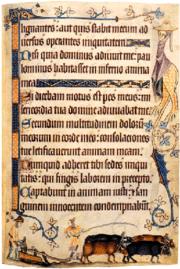 lignantes: aut quis stabit mecum ad
versus operantes iniquitatem
Nisi quia dominus adiuvit me: pau
lominus habitasset in inferno anima
mea
Si dicebam motus est pes meus: mi
sericordia tua domine adiuvabat me
Secundum multitudinem dolorum
meorum in corde meo: consolaciones
tue letificaverunt animam meam
Numquid adheret tibi sedes iniqui
tatis: qui fingis laborem in precepto
Captabunt in animam iusti: et san
guinem innocentem condempnabunt